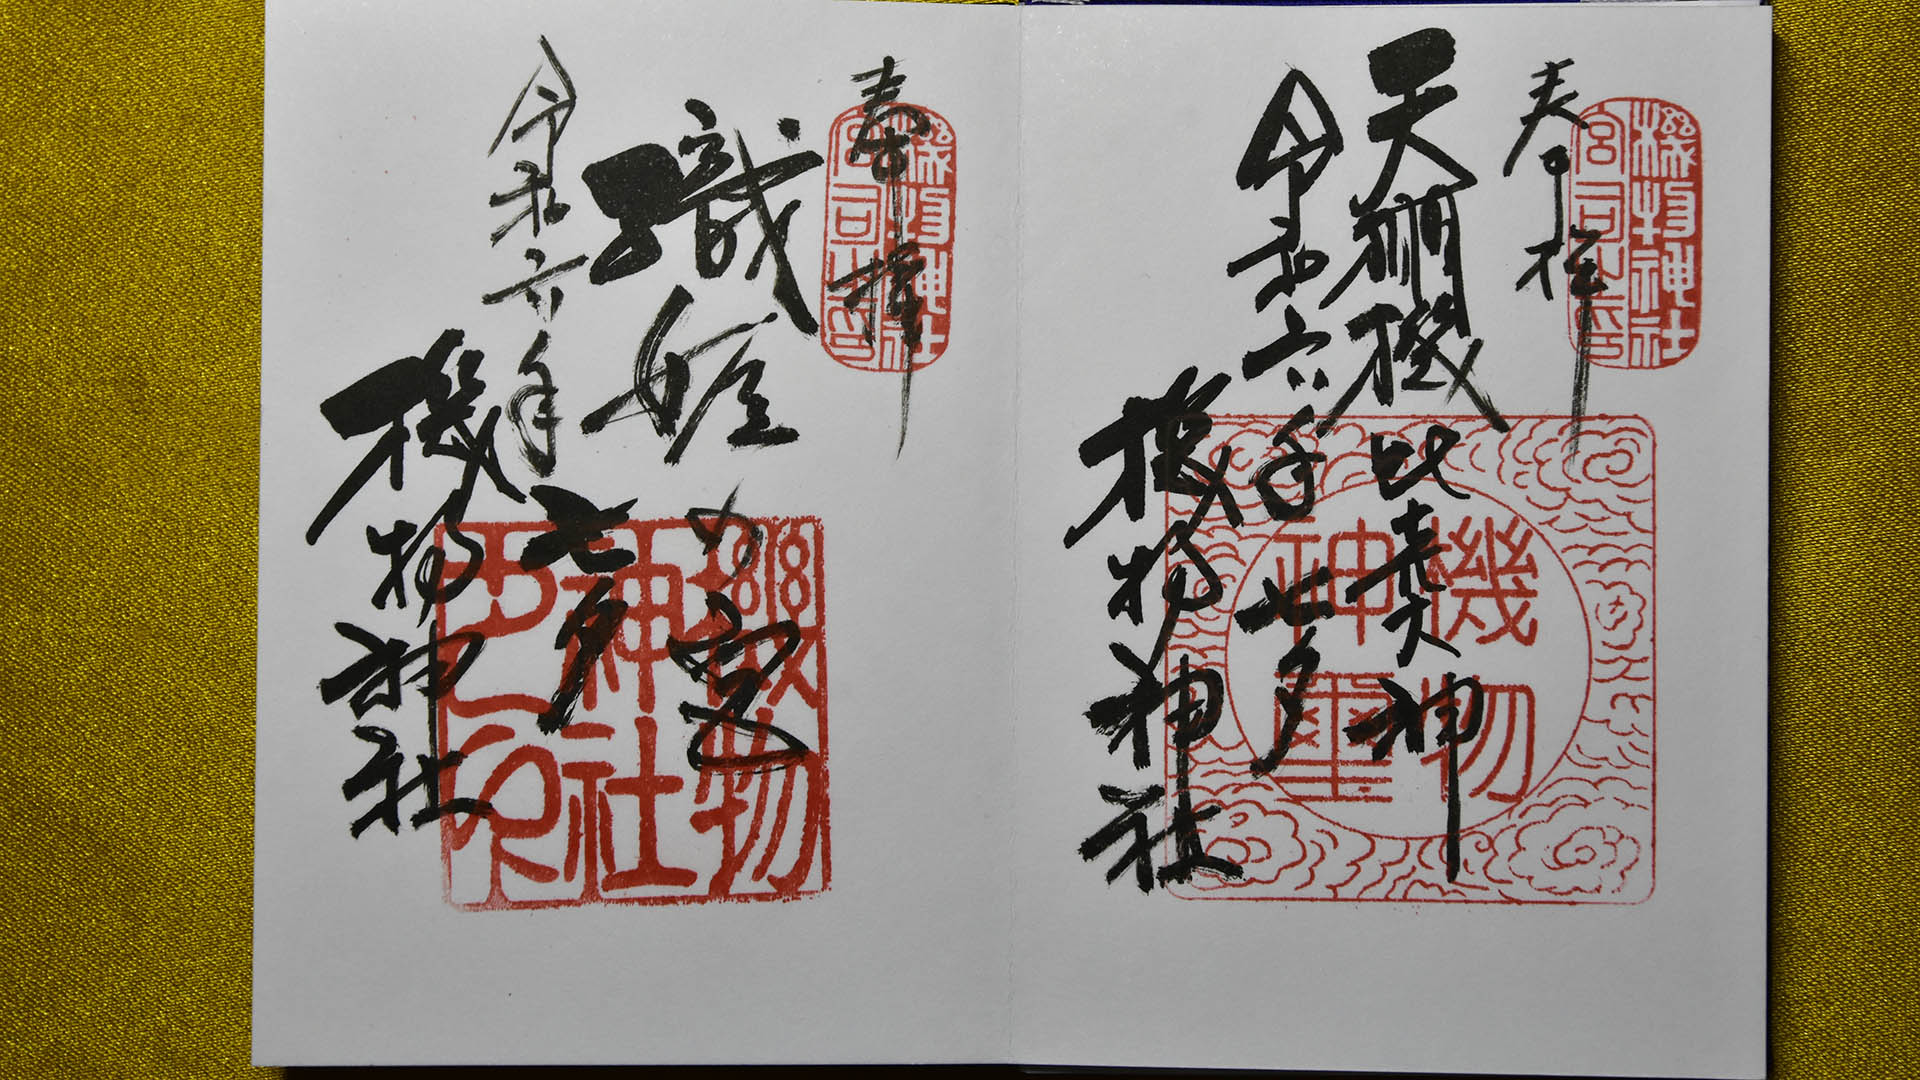 奉拝
機物神社
宮司之印
天棚機比売大神
機物
神璽
令和六年七夕
機物神社
奉拝
機物神社
宮司之印
織姫の宮
機物
神社
之印
令和六年七夕
機物神社